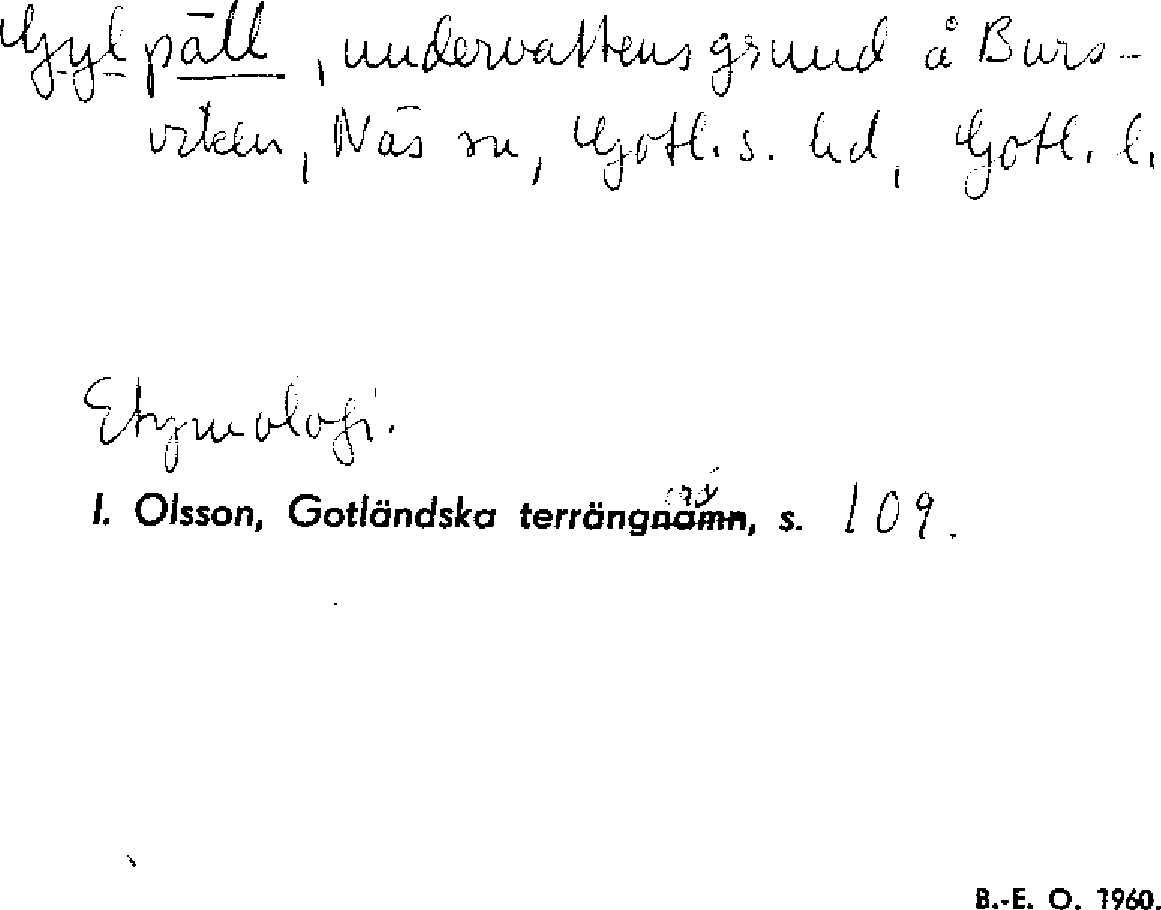 Gylpäll, undervattensgrund å Burs-
viken, Näs sn, Gotl. s. hd, Gotl. l.
Etymologi.
I. Olsson, Gotländska terrängord, s. 109.
B.-E. O. 1960.